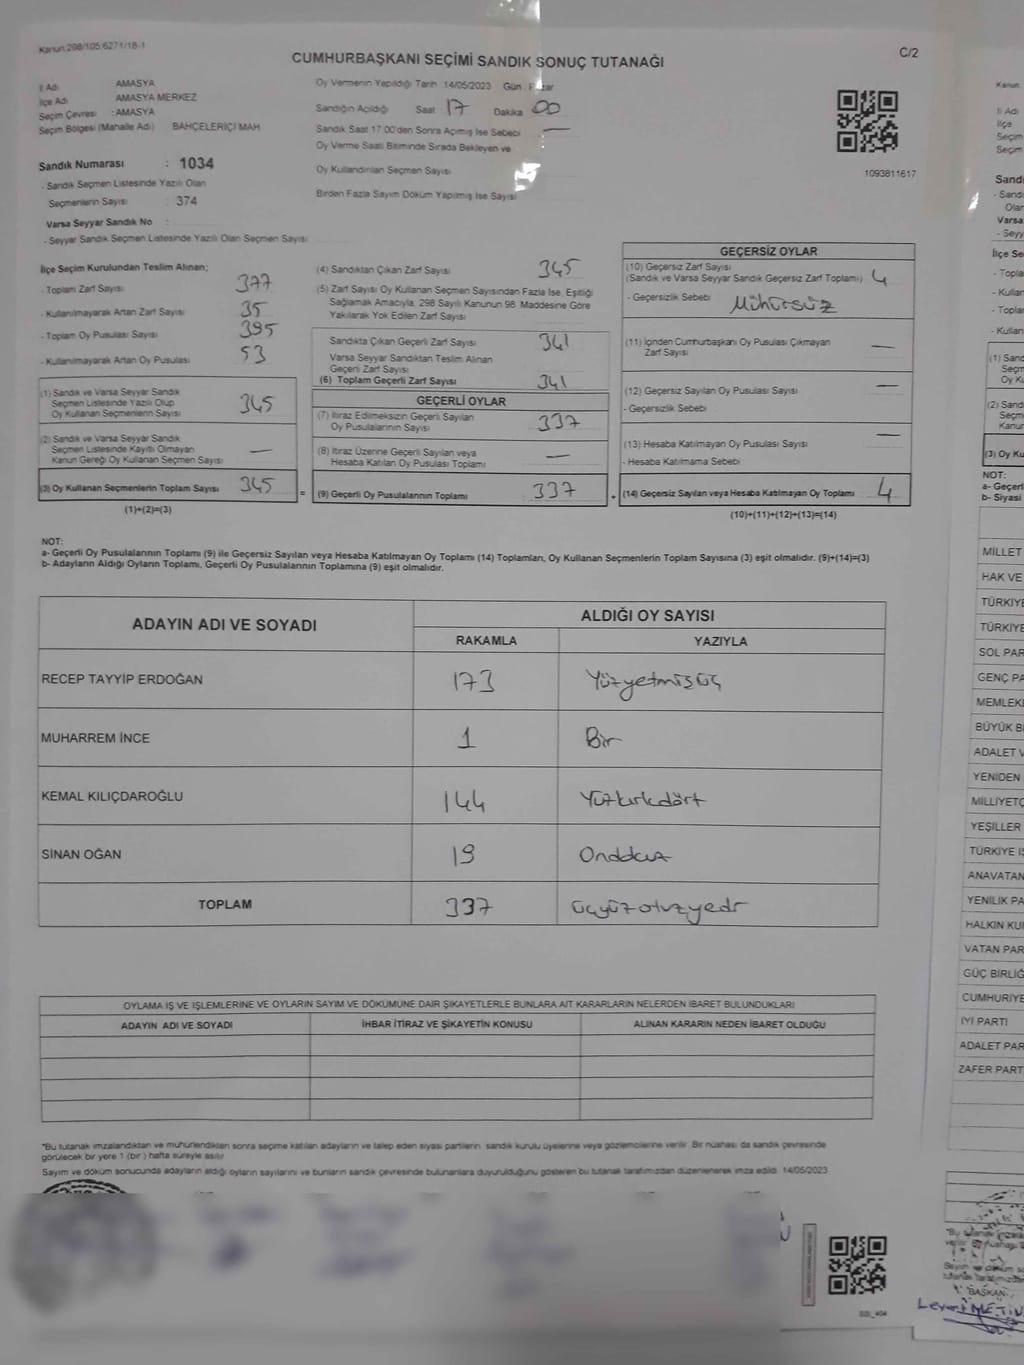 Kanun 298/105:6271/18-1
CUMHURBAŞKANI SEÇİMİ SANDIK SONUÇ TUTANAĞI
C/2
İl Adı AMASYA
İlçe Adı AMASYA MERKEZ
Seçim Çevresi : AMASYA
Seçim Bölgesi (Mahalle Adı) BAHÇELERİÇİ MAH
Oy Vermenin Yapıldığı Tarih 14/05/2023 Gün Pazar
Sandığın Açıldığı Saat 17 Dakika 00
Sandık Saat 17:00'den Sonra Açılmış İse Sebebi —
Oy Verme Saati Bitiminde Sırada Bekleyen ve
Oy Kullandırılan Seçmen Sayısı
Birden Fazla Sayım Döküm Yapılmış İse Sayısı
1093811617
Sandık Numarası : 1034
- Sandık Seçmen Listesinde Yazılı Olan
Seçmenlerin Sayısı : 374
Varsa Seyyar Sandık No :
- Seyyar Sandık Seçmen Listesinde Yazılı Olan Seçmen Sayısı
İlçe Seçim Kurulundan Teslim Alınan;
- Toplam Zarf Sayısı 377
- Kullanılmayarak Artan Zarf Sayısı 35
- Toplam Oy Pusulası Sayısı 395
- Kullanılmayarak Artan Oy Pusulası 53
(1) Sandık ve Varsa Seyyar Sandık
Seçmen Listesinde Yazılı Olup
Oy Kullanan Seçmenlerin Sayısı 345
(2) Sandık ve Varsa Seyyar Sandık
Seçmen Listesinde Kayıtlı Olmayan
Kanun Gereği Oy Kullanan Seçmen Sayısı —
(3) Oy Kullanan Seçmenlerin Toplam Sayısı 345 =
(1)+(2)=(3)
(4) Sandıktan Çıkan Zarf Sayısı 345
(5) Zarf Sayısı Oy Kullanan Seçmen Sayısından Fazla İse, Eşitliği
Sağlamak Amacıyla, 298 Sayılı Kanunun 98. Maddesine Göre
Yakılarak Yok Edilen Zarf Sayısı
Sandıkta Çıkan Geçerli Zarf Sayısı 341
Varsa Seyyar Sandıktan Teslim Alınan
Geçerli Zarf Sayısı
(6) Toplam Geçerli Zarf Sayısı 341
GEÇERLİ OYLAR
(7) İtiraz Edilmeksizin Geçerli Sayılan
Oy Pusulalarının Sayısı 337
(8) İtiraz Üzerine Geçerli Sayılan veya
Hesaba Katılan Oy Pusulası Toplamı —
(9) Geçerli Oy Pusulalarının Toplamı : 337 +
GEÇERSİZ OYLAR
(10) Geçersiz Zarf Sayısı
(Sandık ve Varsa Seyyar Sandık Geçersiz Zarf Toplamı) 4
- Geçersizlik Sebebi Mühürsüz
(11) İçinden Cumhurbaşkanı Oy Pusulası Çıkmayan
Zarf Sayısı —
(12) Geçersiz Sayılan Oy Pusulası Sayısı —
- Geçersizlik Sebebi
(13) Hesaba Katılmayan Oy Pusulası Sayısı —
- Hesaba Katılmama Sebebi
(14) Geçersiz Sayılan veya Hesaba Katılmayan Oy Toplamı 4
(10)+(11)+(12)+(13)=(14)
NOT:
a- Geçerli Oy Pusulalarının Toplamı (9) ile Geçersiz Sayılan veya Hesaba Katılmayan Oy Toplamı (14) Toplamları, Oy Kullanan Seçmenlerin Toplam Sayısına (3) eşit olmalıdır. (9)+(14)=(3)
b- Adayların Aldığı Oyların Toplamı, Geçerli Oy Pusulalarının Toplamına (9) eşit olmalıdır.
ADAYIN ADI VE SOYADI ALDIĞI OY SAYISI
RAKAMLA YAZIYLA
RECEP TAYYİP ERDOĞAN 173 Yüzyetmişüç
MUHARREM İNCE 1 Bir
KEMAL KILIÇDAROĞLU 144 Yüzkırkdört
SİNAN OĞAN 19 Ondokuz
TOPLAM 337 üçyüzotuzyedi
OYLAMA İŞ VE İŞLEMLERİNE VE OYLARIN SAYIM VE DÖKÜMÜNE DAİR ŞİKAYETLERLE BUNLARA AİT KARARLARIN NELERDEN İBARET BULUNDUKLARI
ADAYIN ADI VE SOYADI İHBAR İTİRAZ VE ŞİKAYETİN KONUSU ALINAN KARARIN NEDEN İBARET OLDUĞU
*Bu tutanak imzalandıktan ve mühürlendikten sonra seçime katılan adayların ve talep eden siyasi partilerin sandık kurulu üyelerine veya gözlemcilerine verilir. Bir nüshası da sandık çevresinde
görülecek bir yere 1 (bir) hafta süreyle asılır.
Sayım ve döküm sonucunda adayların aldığı oyların sayılarını ve bunların sandık çevresinde bulunanlara duyurulduğunu gösteren bu tutanak tarafımızdan düzenlenerek imza edildi. 14/05/2023
Kanun
İl Adı
İlçe
Seçim
Seçim
Sandı
- Sand
Olar
Varsa
- Seyy
İlçe Se
- Topla
- Kullar
- Toplar
- Kullan
(1) Sand
Seçm
Oy Ku
(2) Sand
Seçm
Kanur
(3) Oy Ku
NOT:
a- Geçerl
b- Siyasi
MİLLET
HAK VE
TÜRKİYE
TÜRKİYE
SOL PAR
GENÇ PA
MEMLEK
BÜYÜK B
ADALET V
YENİDEN
MİLLİYETÇ
YEŞİLLER
TÜRKİYE İŞ
ANAVATAN
YENİLİK PA
HALKIN KU
VATAN PAR
GÜÇ BİRLİĞ
CUMHURİYE
İYİ PARTİ
ADALET PAR
ZAFER PART
BAŞKAN